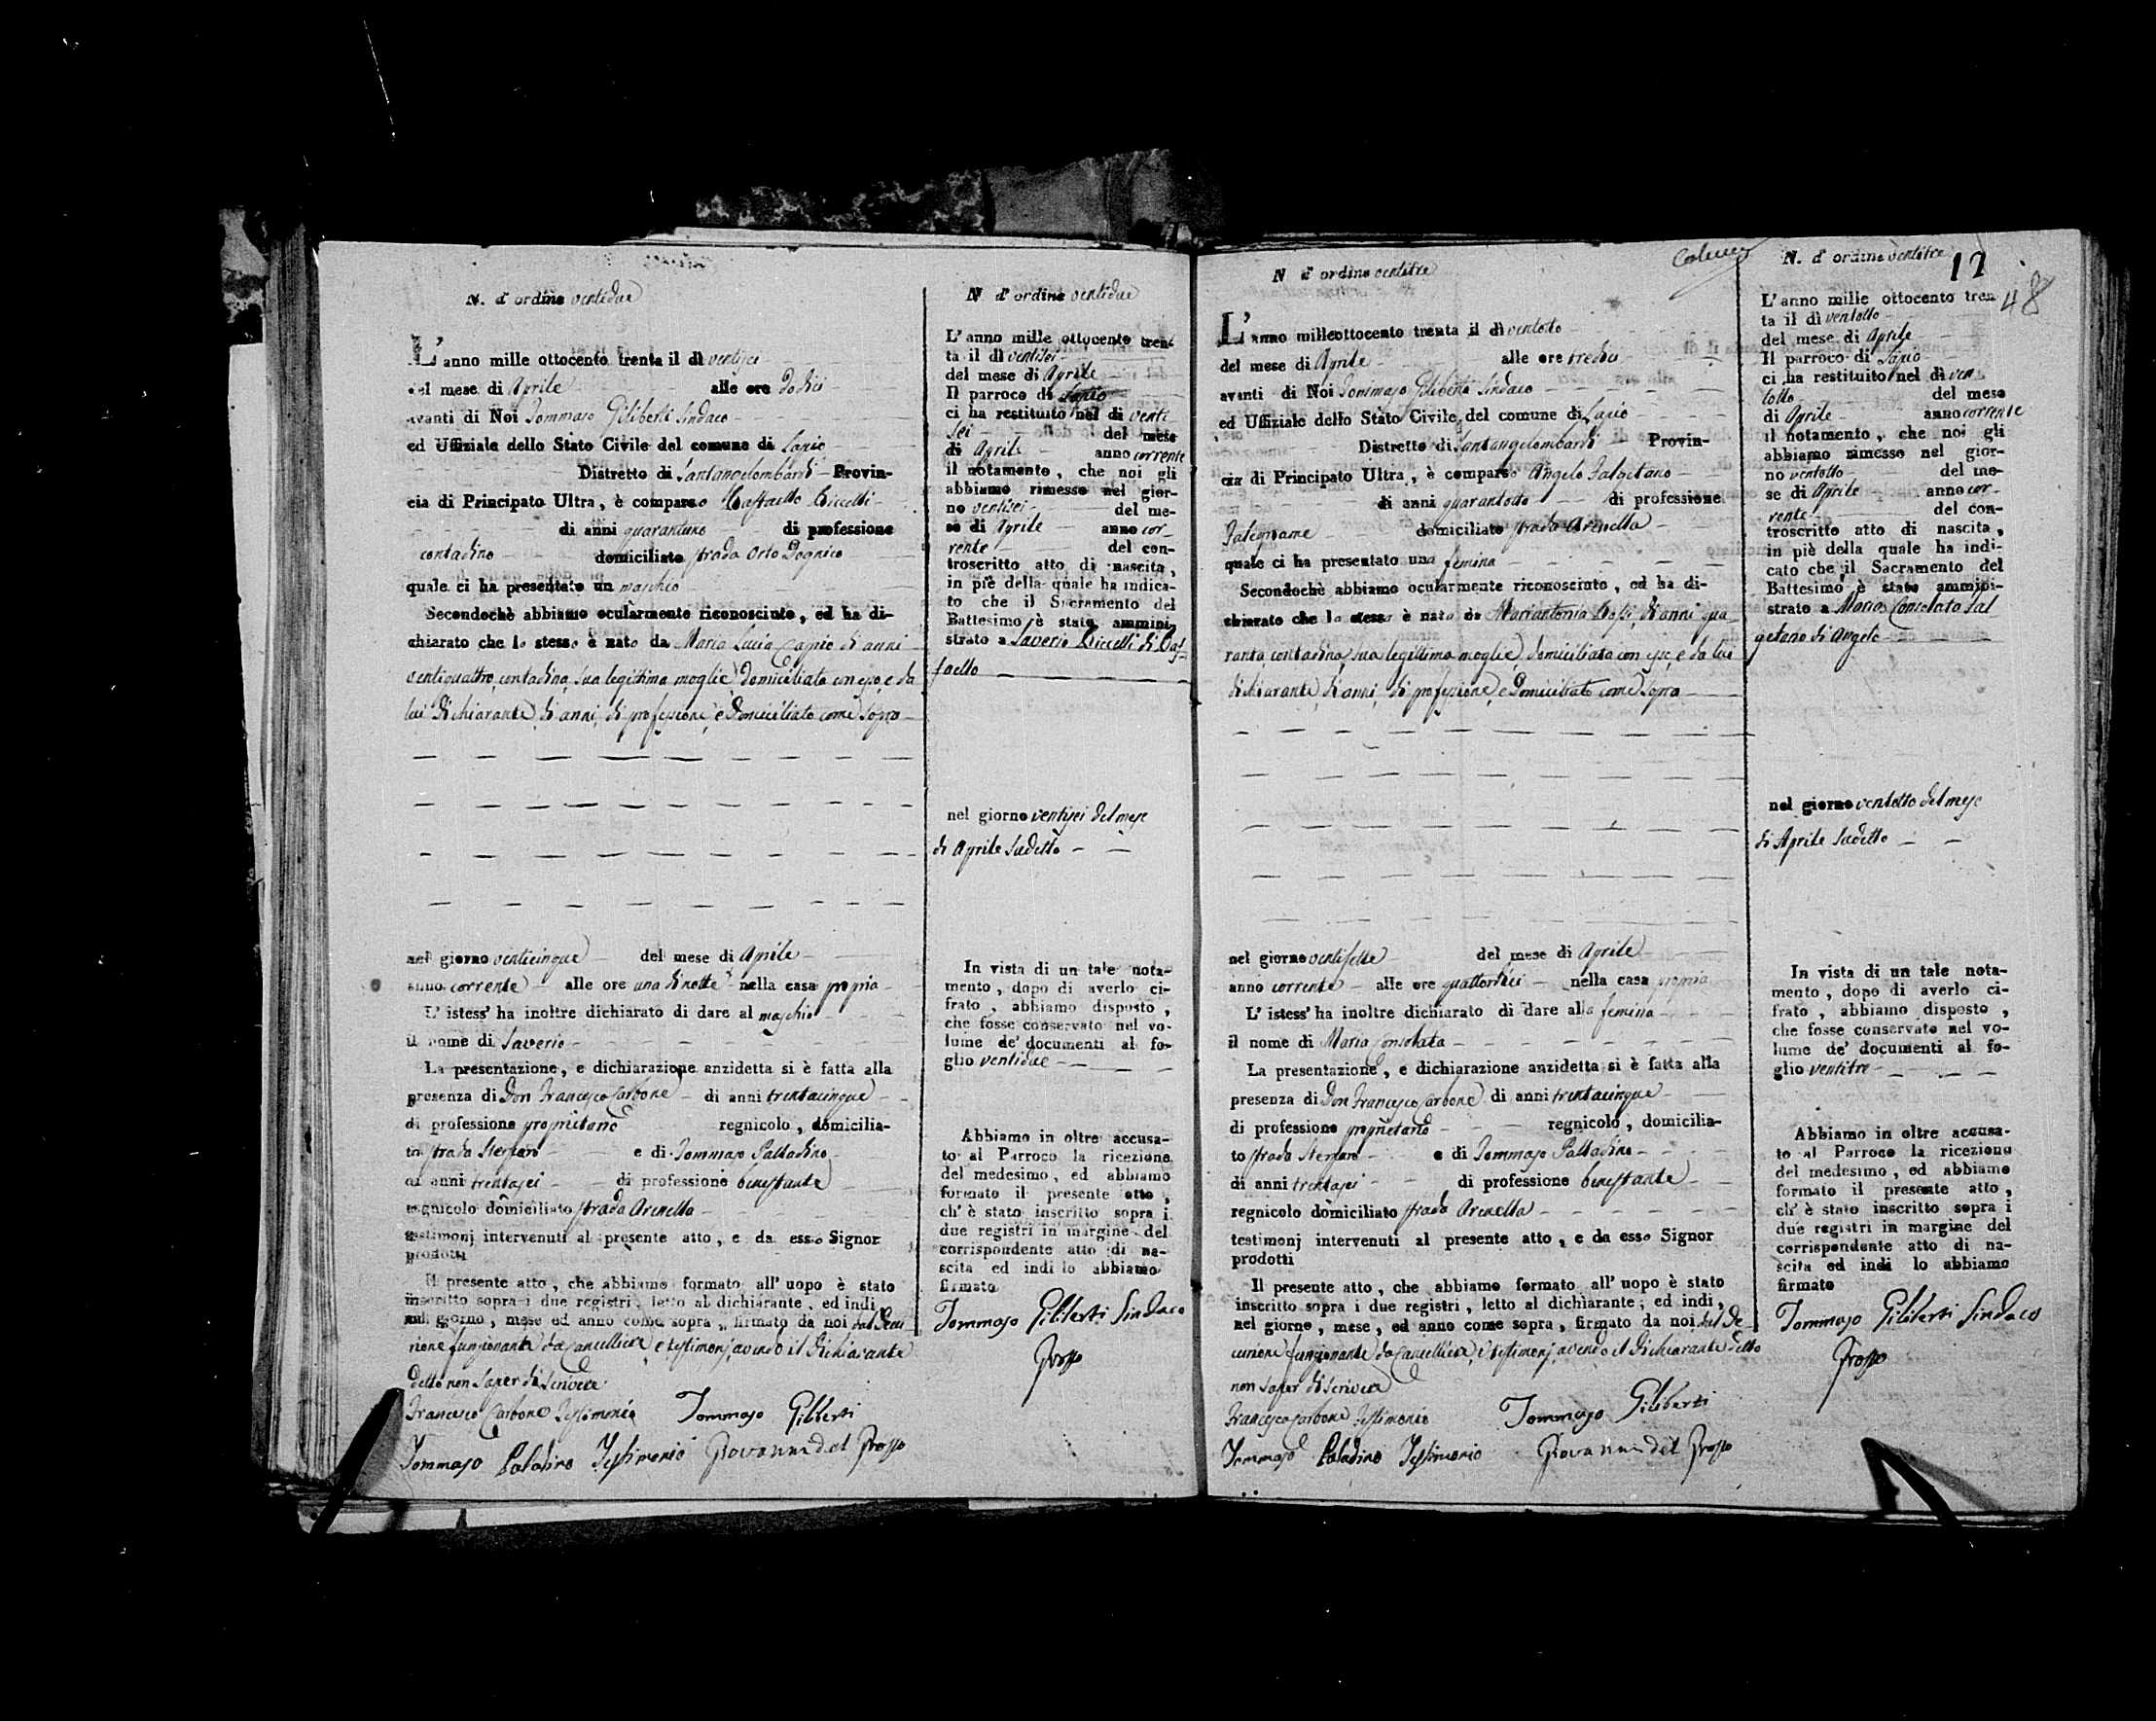 N. d' ordine ventidue
L'anno mille ottocento trenta il dì ventisei
del mese di Aprile alle ore dodici
avanti di Noi Tommaso Giliberti Sindaco
ed Uffiziale dello Stato Civile del comune di Lapio
Distretto di Santangelombardi Provin-
cia di Principato Ultra, è comparso Raffaello Ciccelli
di anni quarantuno di professione
contadino domiciliato strada Orto
quale ci ha presentato un maschio
Secondochè abbiamo ocularmente riconosciuto, ed ha di-
chiarato che lo stesso è nato da Maria Lucia Caprio di anni
ventiquattro, contadina, sua legittima moglie, domiciliata con esso, e da
lui dichiarante, di anni, di professione, e domiciliato come sopra
nel giorno venticinque del mese di Aprile
anno corrente alle ore una di notte nella casa propria
L' istess' ha inoltre dichiarato di dare al maschio
il nome di Saverio
La presentazione, e dichiarazione anzidetta si è fatta alla
presenza di Don Francesco Carbone di anni trentacinque
di professione proprietario regnicolo, domicilia-
to strada e di Tommaso Palladino
di anni trentasei di professione benestante
regnicolo domiciliato strada Arenella
testimonj intervenuti al presente atto, e da esso Signor
prodotti
Il presente atto, che abbiamo formato all' uopo è stato
inscritto sopra i due registri, letto al dichiarante, ed indi,
nel giorno, mese ed anno come sopra, firmato da noi dal Decu-
rione funzionante da Cancelliere, e testimonj, avendo il dichiarante
detto non saper di scrivere
Francesco Carbone Testimonio Tommaso Giliberti
Tommaso Paladino Testimonio Giovanni del Grosso
N d' ordine ventidue
L'anno mille ottocento tren-
ta il dì ventisei
del mese di Aprile
Il parroco di Lapio
ci ha restituito nel dì venti
sei del mese
di Aprile anno corrente
il notamento, che noi gli
abbiamo rimesso nel gior-
no ventisei del me-
se di Aprile anno cor-
rente del con-
troscritto atto di nascita,
in piè della quale ha indica-
to che il Sacramento del
Battesimo è stato ammini-
strato a Saverio Ciccelli di Raf-
faello
nel giorno ventisei del mese
di Aprile sudetto
In vista di un tale nota-
mento, dopo di averlo ci-
frato, abbiamo disposto,
che fosse conservato nel vo-
lume de' documenti al fo-
glio ventidue
Abbiamo in oltre accusa-
to al Parroco la ricezione
del medesimo, ed abbiamo
formato il presente atto,
ch' è stato inscritto sopra i
due registri in margine del
corrispondente atto di na-
scita ed indi lo abbiamo
firmato
Tommaso Giliberti Sindaco
Grosso
N d' ordine ventitre
L'anno milleottocento trenta il dì ventotto
del mese di Aprile alle ore tredici
avanti di Noi Tommaso Giliberti Sindaco
ed Uffiziale dello Stato Civile del comune di Lapio
Distretto di Santangelombardi Provin-
cia di Principato Ultra, è comparso Angelo Galgetano
di anni quarantotto di professione
Falegname domiciliato strada Arenella
quale ci ha presentato una femina
Secondochè abbiamo ocularmente riconosciuto, ed ha di-
chiarato che la stessa è nata da Mariantonia di anni qua
ranta, contadina, sua legittima moglie, domiciliata con esso, e da lui
dichiarante, di anni, di professione, e domiciliato come sopra
nel giorno ventisette del mese di Aprile
anno corrente alle ore quattordici nella casa propria
L' istess' ha inoltre dichiarato di dare alla femina
il nome di Maria Consolata
La presentazione, e dichiarazione anzidetta si è fatta alla
presenza di Don Francesco Carbone di anni trentacinque
di professione proprietario regnicolo, domicilia-
to strada e di Tommaso Palladino
di anni trentasei di professione benestante
regnicolo domiciliato strada Arenella
testimonj intervenuti al presente atto, e da esso Signor
prodotti
Il presente atto, che abbiamo formato all' uopo è stato
inscritto sopra i due registri, letto al dichiarante, ed indi,
nel giorno, mese, ed anno come sopra, firmato da noi dal De-
curione funzionante da Cancelliere, e testimonj, avendo il dichiarante detto
non saper di scrivere
Francesco Carbone Testimonio Tommaso Giliberti
Tommaso Paladino Testimonio Giovanni del Grosso
N. d' ordine ventitre
17
48
L'anno mille ottocento tren-
ta il dì ventotto
del mese di Aprile
Il parroco di Lapio
ci ha restituito nel dì ven
totto del mese
di Aprile anno corrente
il notamento, che noi gli
abbiamo rimesso nel gior-
no ventotto del me-
se di Aprile anno cor-
rente del con-
troscritto atto di nascita,
in piè della quale ha indi-
cato che il Sacramento del
Battesimo è stato ammini-
strato a Maria Consolata Gal
getano di Angelo
nel giorno ventotto del mese
di Aprile sudetto
In vista di un tale nota-
mento, dopo di averlo ci-
frato, abbiamo disposto,
che fosse conservato nel vo-
lume de' documenti al fo-
glio ventitre
Abbiamo in oltre accusa-
to al Parroco la ricezione
del medesimo, ed abbiamo
formato il presente atto,
ch' è stato inscritto sopra i
due registri in margine del
corrispondente atto di na-
scita ed indi lo abbiamo
firmato
Tommaso Giliberti Sindaco
Grosso